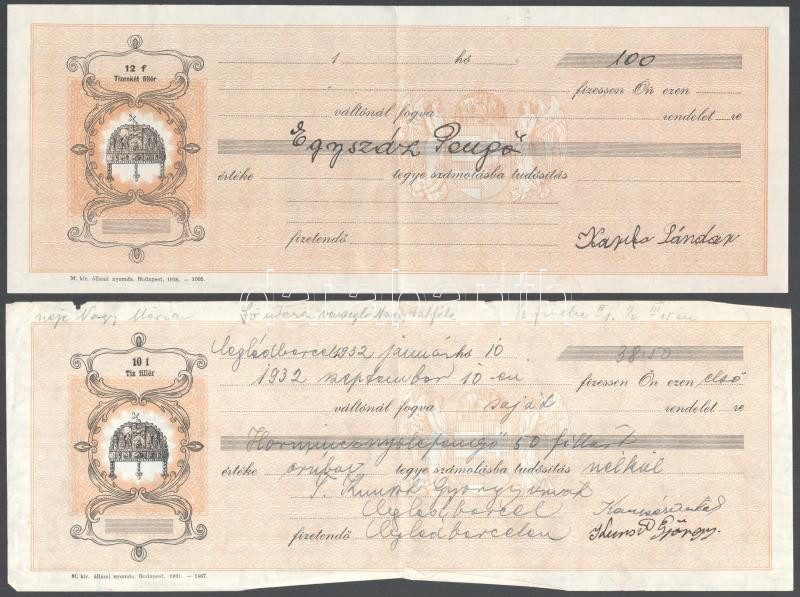 12 f
Tizenkét fillér
1 hó 100
fizessen Ön ezen
váltónál fogva rendelet re
Egyszáz Pengő
értéke tegye számolásba tudósítás
fizetendő
Sándor
M. kir. állami nyomda. Budapest, 1938. —
darabanth
neje Nagy Mária
10 f
Tíz fillér
Ceglédbercel, 1932 január hó 10 38.50
1932 szeptember 10-én fizessen Ön ezen első
váltónál fogva saját rendelet re
Harmincznyolcpengő 50 fillért
értéke áruban tegye számolásba tudósítás nélkül
T. Kunst György urnak
Ceglédbercel
fizetendő Ceglédbercelen Kunst György.
M. kir. állami nyomda. Budapest, 1931. —